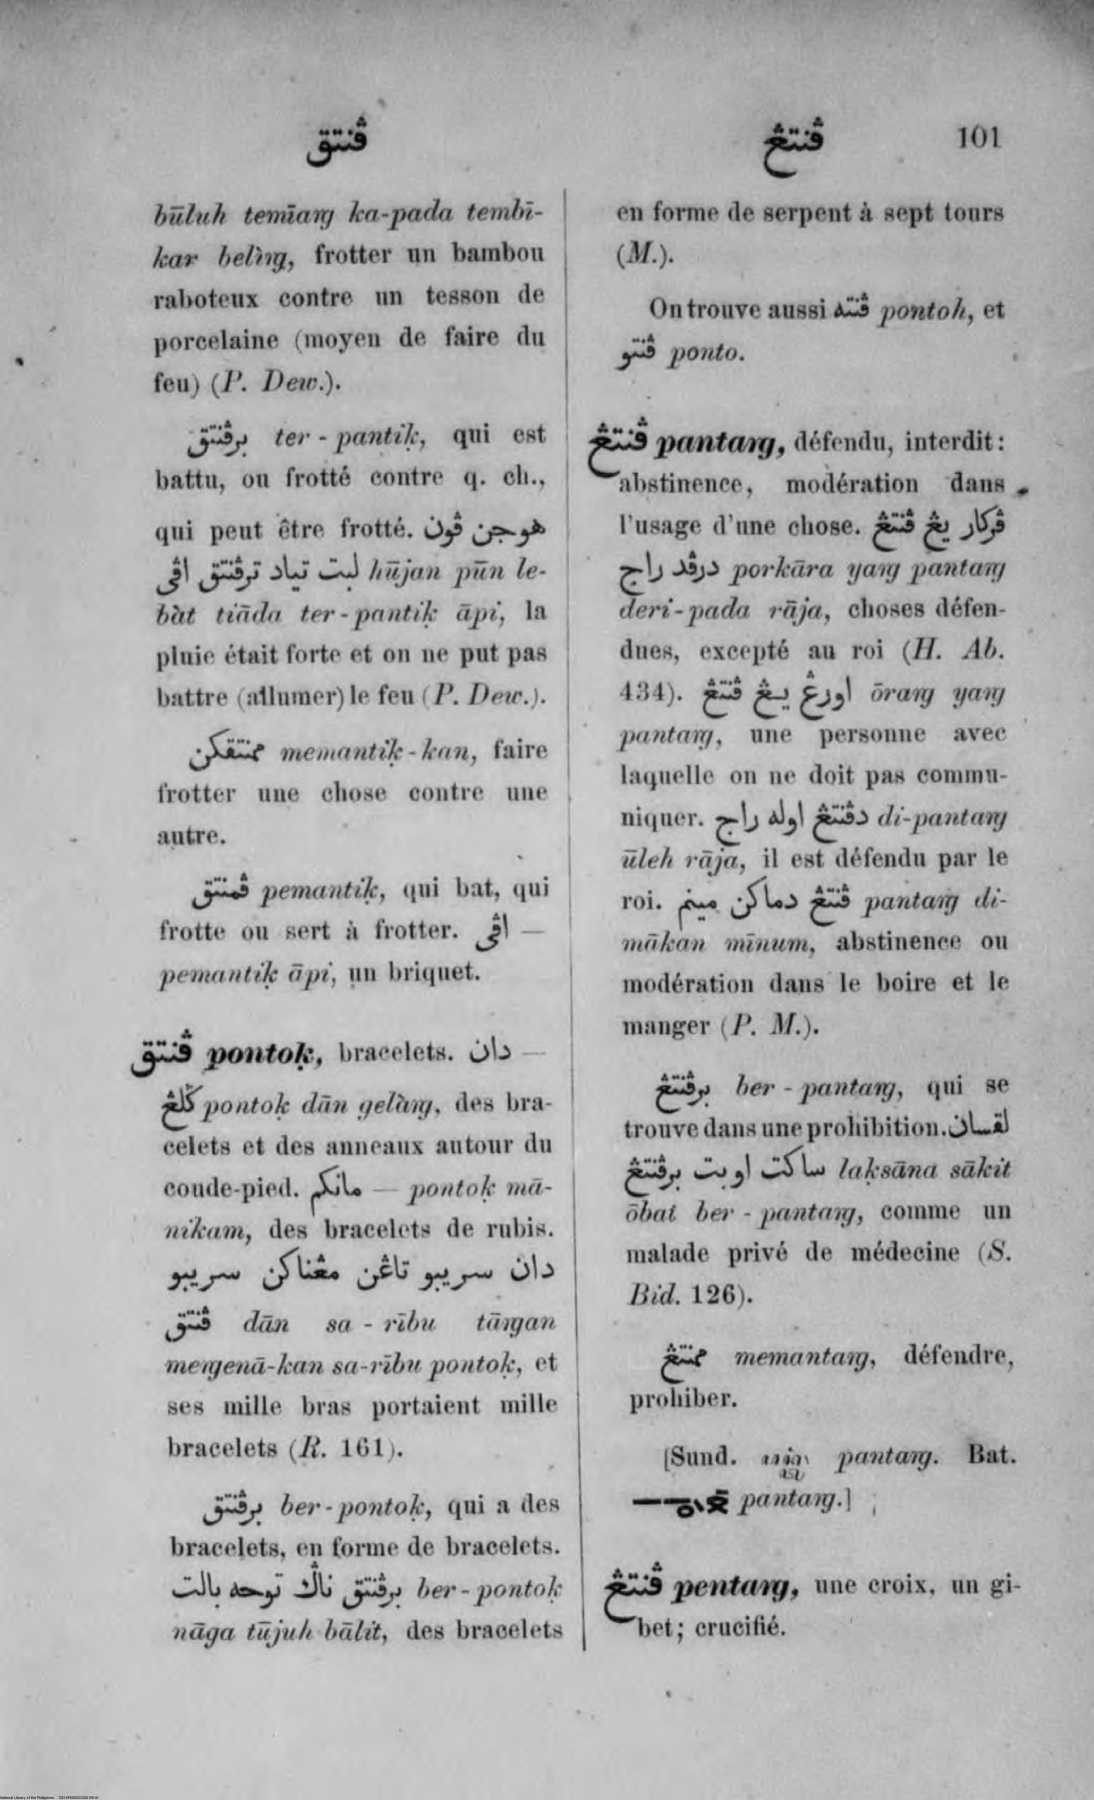 ڤنتق
ڤنتڠ 101
būluh temīaꞑ ka-pada tembī-
kar belìꞑ, frotter un bambou
raboteux contre un tesson de
porcelaine (moyen de faire du
feu) (P. Dew.).
برڤنتق ter - pantiḳ, qui est
battu, ou frotté contre q. ch.,
qui peut être frotté. هوجن ڤون
لبت تياد ترڤنتق اڤي hūjan pūn le-
bàt tiāda ter-pantiḳ āpi, la
pluie était forte et on ne put pas
battre (allumer) le feu (P. Dew.).
ممنتقكن memantiḳ-kan, faire
frotter une chose contre une
autre.
ڤمنتق pemantiḳ, qui bat, qui
frotte ou sert à frotter. اڤي —
pemantiḳ āpi, un briquet.
ڤنتق pontoḳ, bracelets. دان —
ݢلڠ pontoḳ dān gelàꞑ, des bra-
celets et des anneaux autour du
coude-pied. مانكم — pontoḳ mā-
nikam, des bracelets de rubis.
دان سريبو تاڠن مڠناكن سريبو
ڤنتق dān sa - rību tāꞑan
meꞑenā-kan sa-rību pontoḳ, et
ses mille bras portaient mille
bracelets (R. 161).
برڤنتق ber-pontoḳ, qui a des
bracelets, en forme de bracelets.
برڤنتق ناݢ توجه بالت ber-pontoḳ
nāga tūjuh bālit, des bracelets
en forme de serpent à sept tours
(M.).
On trouve aussi ڤنته pontoh, et
ڤنتو ponto.
ڤنتڠ pantaꞑ, défendu, interdit:
abstinence, modération dans
l'usage d'une chose. ڤركار يڠ ڤنتڠ
درڤد راج porkāra yaꞑ pantaꞑ
deri-pada rāja, choses défen-
dues, excepté au roi (H. Ab.
434). اورڠ يڠ ڤنتڠ ōraꞑ yaꞑ
pantaꞑ, une personne avec
laquelle on ne doit pas commu-
niquer. دڤنتڠ اوله راج di-pantaꞑ
ūleh rāja, il est défendu par le
roi. ڤنتڠ دماكن مينم pantaꞑ di-
mākan mīnum, abstinence ou
modération dans le boire et le
manger (P. M.).
برڤنتڠ ber - pantaꞑ, qui se
trouve dans une prohibition. لقسان
ساكت اوبت برڤنتڠ laḳsāna sākit
ōbat ber - pantaꞑ, comme un
malade privé de médecine (S.
Bid. 126).
ممنتڠ memantaꞑ, défendre,
prohiber.
[Sund. pantaꞑ. Bat.
pantaꞑ.]
ڤنتڠ pentaꞑ, une croix, un gi-
bet; crucifié.